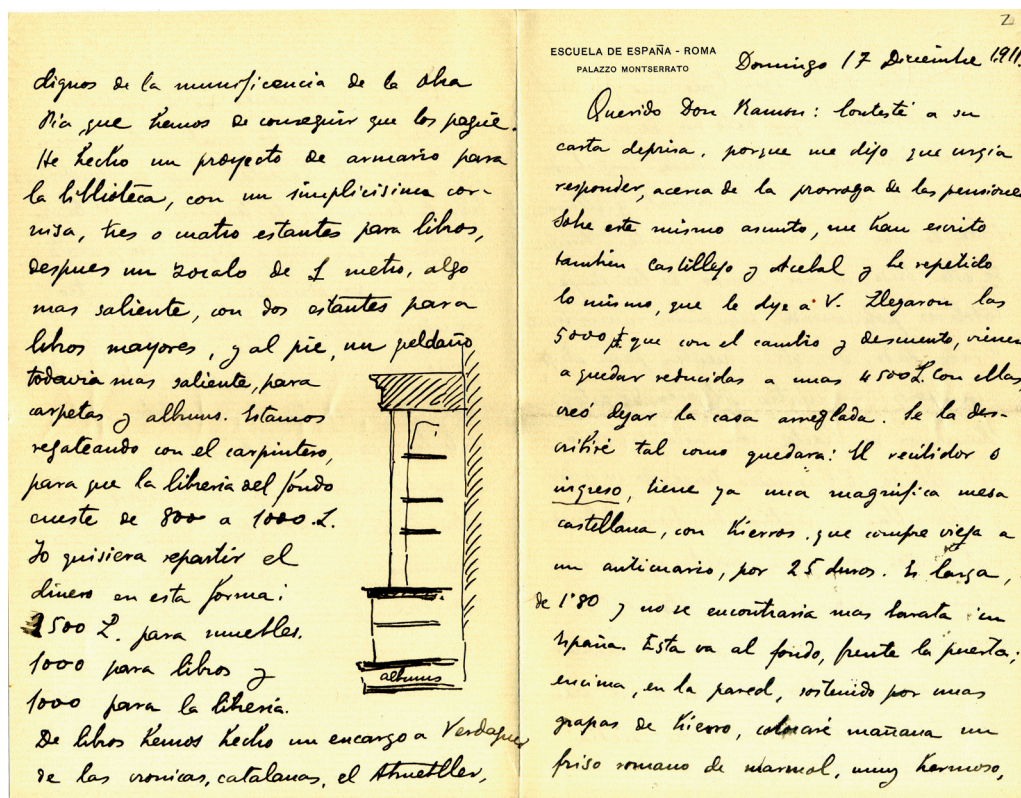 dignos de la munificencia de la Obra
Pia que hemos de conseguir que los pague.
He hecho un proyecto de armario para
la biblioteca, con un simplicisima cor-
nisa, tres o cuatro estantes para libros,
despues un zocalo de 1 metro, algo
mas saliente, con dos estantes para
libros mayores, y al pie, un peldaño
todavia mas saliente, para
carpetas y albums. Estamos
regateando con el carpintero,
para que la libreria del fondo
cueste de 800 a 1000 L.
Yo quisiera repartir el
dinero en esta forma:
2500 L. para muebles.
1000 para libros y
1000 para la libreria.
De libros hemos hecho un encargo a Verdaguer
de las cronicas, catalanas, el Atmetller,
albums
2
ESCUELA DE ESPAÑA - ROMA
PALAZZO MONTSERRATO
Domingo 17 Diciembre 1911.
Querido Don Ramon: Contesté a su
carta deprisa, porque me dijo que urgia
responder, acerca de la prorroga de las pensiones
Sobre este mismo asunto, me han escrito
tambien Castillejo y Acebal y he repetido
lo mismo, que le dije a V. Llegaron las
5000 que con el cambio y descuento, vienen
a quedar reducidas a unas 4500 L. Con ellas,
creó dejar la casa arreglada. Se la des-
cribiré tal como quedara: El recibidor o
ingreso, tiene ya una magnifica mesa
castellana, con hierros, que compre vieja a
un anticuario, por 25 duros. Es larga,
de 1'80 y no se encontraria mas barata en
España. Esta va al fondo, frente la puerta;
encima, en la pared, sostenido por unas
grapas de hierro, colocaré mañana un
friso romano de marmol, muy hermoso,